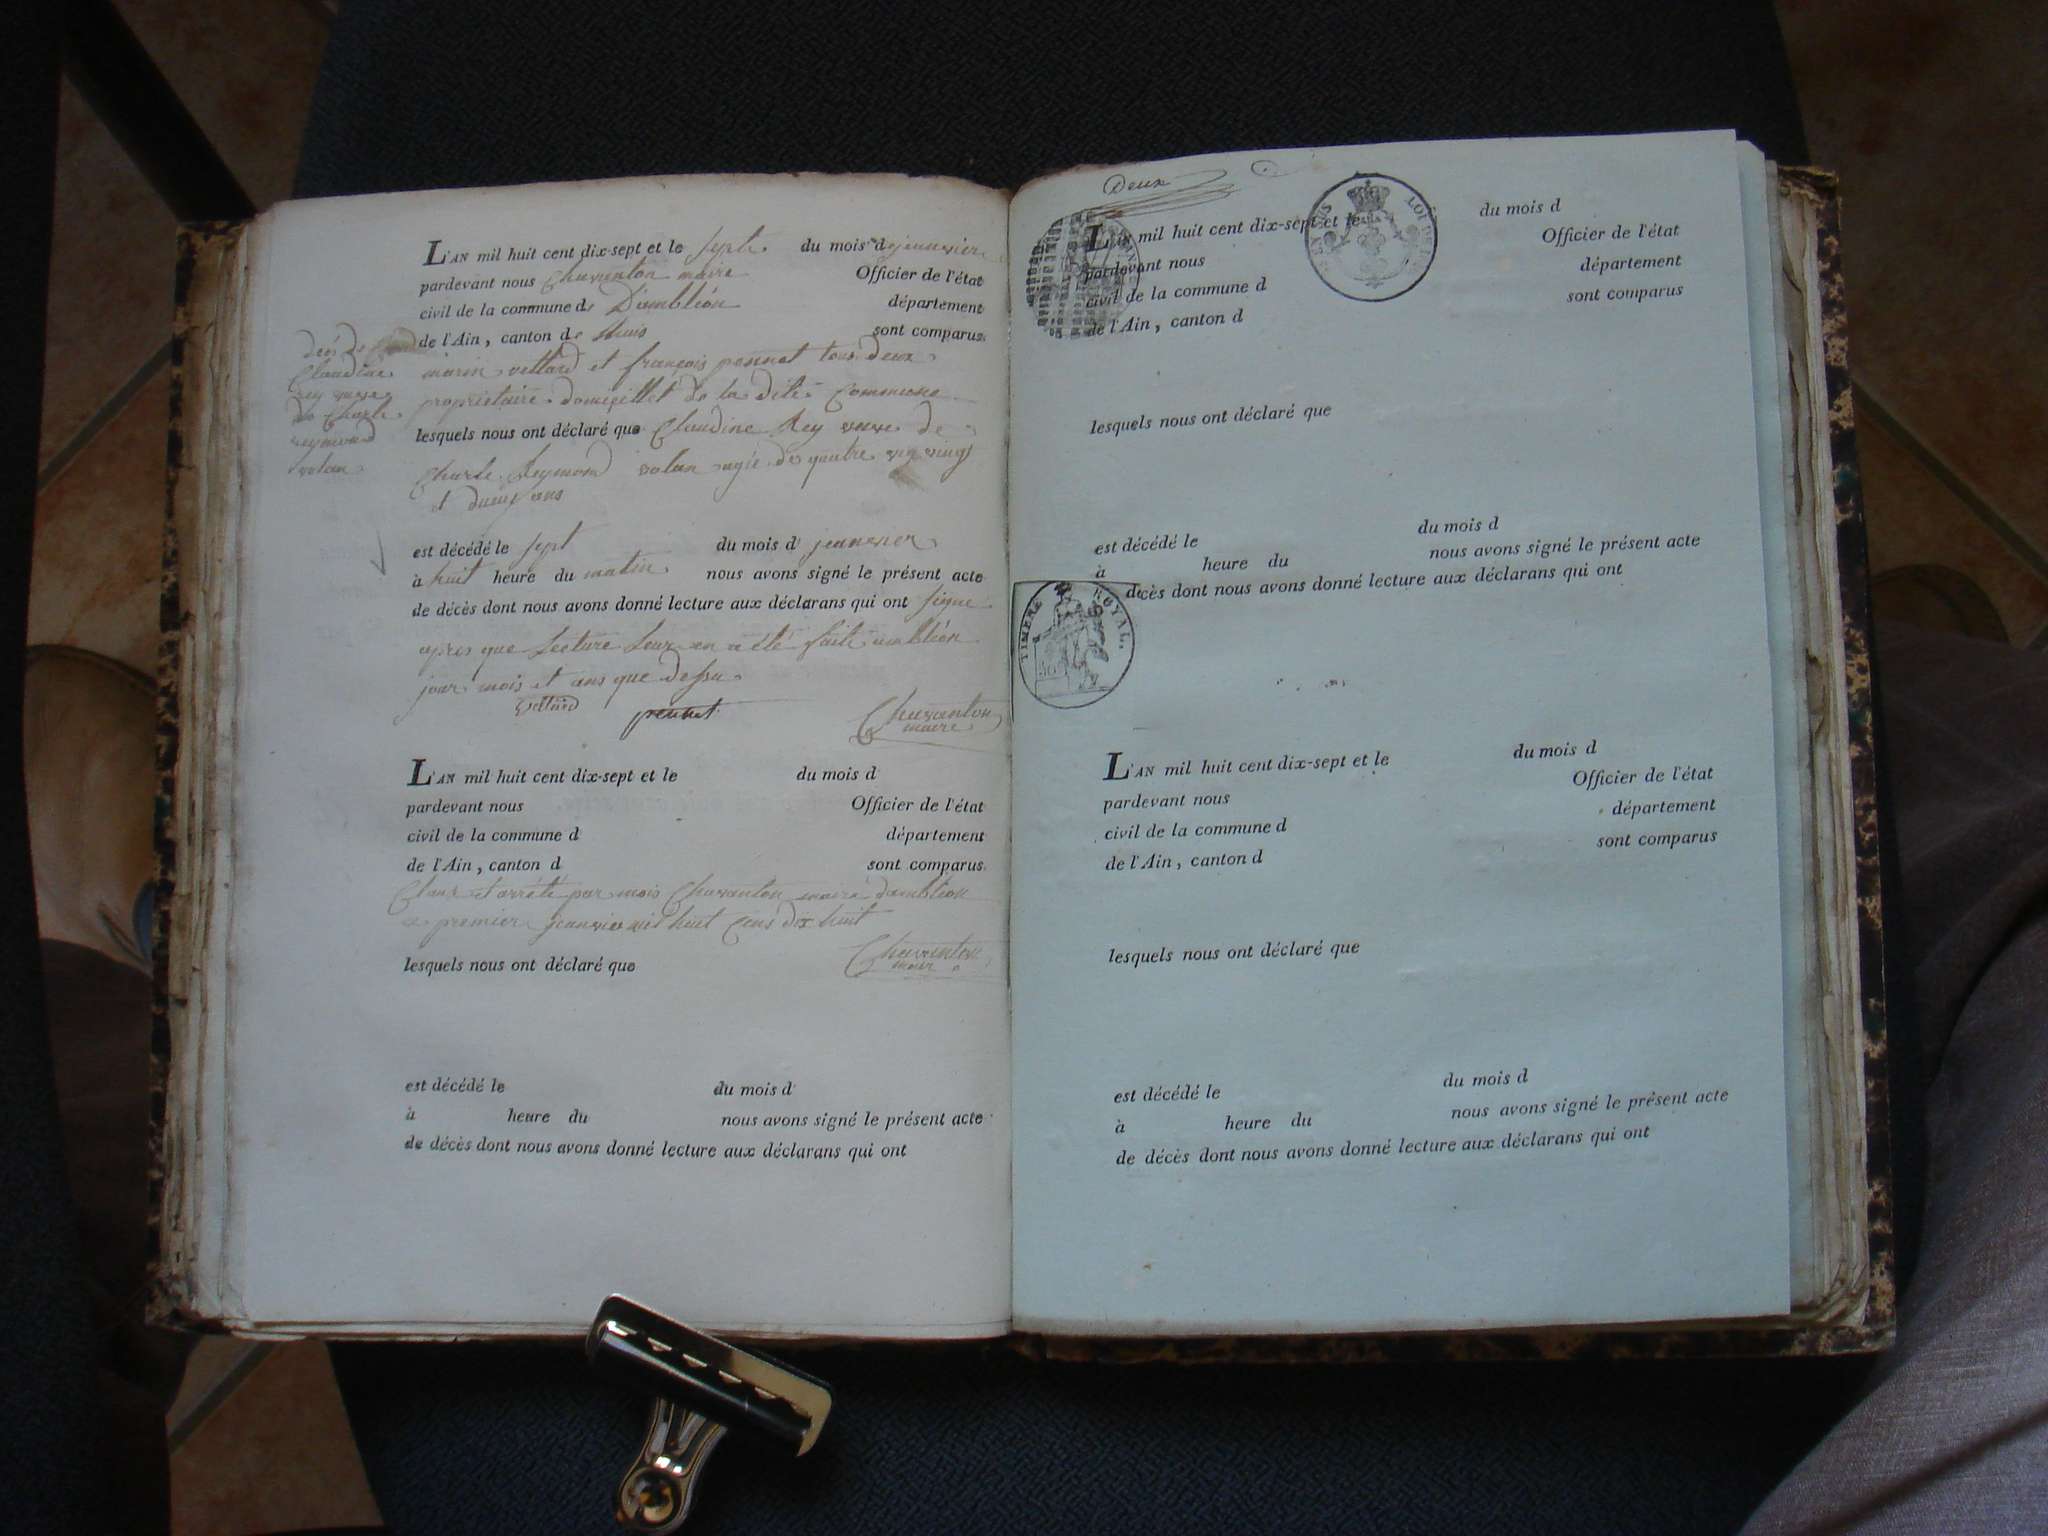 L'AN mil huit cent dix-sept et le sept du mois de jeanvier
pardevant nous Chavanton maire Officier de l'état
civil de la commune de D'ambléon département
de l'Ain, canton de lhuis sont comparus
marin vettard et françois pennet tous deux
propriétaire domicillet de la dite Commune
lesquels nous ont déclaré que Claudine Rey veuve de
Charle Reymond volan agée de quatre vingt
et ans
est décédé le sept du mois d jeanvier
à huit heure du matin nous avons signé le présent acte
de décès dont nous avons donné lecture aux déclarans qui ont signe
apres que Lecture Leur en a été faite ambléon
jour mois et ans que dessu
vettard pennet Chavanton
maire
Claudine
rey veuve
de Charle
reymond
volan
L'AN mil huit cent dix-sept et le du mois d
pardevant nous Officier de l'état
civil de la commune d département
de l'Ain, canton d sont comparus
Clour et arrété par mois Chavanton maire d'ambléon
ce premier jeanvier mil huit Cens dix huit
Chavanton
maire
lesquels nous ont déclaré que
est décédé le du mois d
à heure du nous avons signé le présent acte
de décès dont nous avons donné lecture aux déclarans qui ont
Deux
L'AN mil huit cent dix-sept et le du mois d
pardevant nous Officier de l'état
civil de la commune d département
de l'Ain, canton d sont comparus
lesquels nous ont déclaré que
est décédé le du mois d
à heure du nous avons signé le présent acte
de décès dont nous avons donné lecture aux déclarans qui ont
TIMBRE ROYAL.
L'AN mil huit cent dix-sept et le du mois d
pardevant nous Officier de l'état
civil de la commune d département
de l'Ain, canton d sont comparus
lesquels nous ont déclaré que
est décédé le du mois d
à heure du nous avons signé le présent acte
de décès dont nous avons donné lecture aux déclarans qui ont